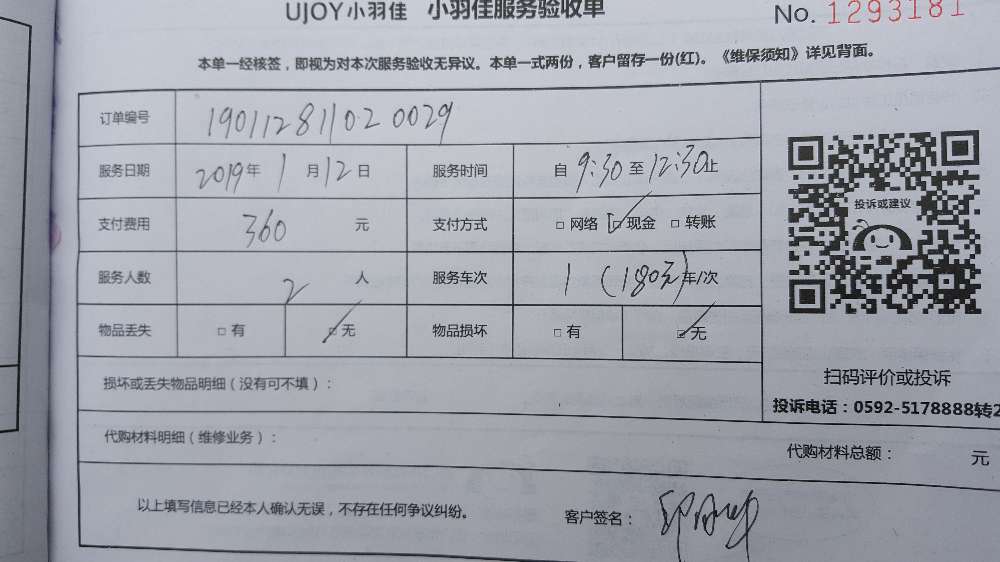 UJOY小羽佳 小羽佳服务验收单
No. 1293181
本单一经核签，即视为对本次服务验收无异议。本单一式两份，客户留存一份(红)。《维保须知》详见背面。
订单编号 190112811020029
服务日期 2019年 1 月 12 日 服务时间 自 9:30 至 12:30 止
支付费用 360 元 支付方式 □ 网络 □ 现金 □ 转账
服务人数 2 人 服务车次 1 (180元) 车/次
物品丢失 □ 有 □ 无 物品损坏 □ 有 □ 无
投诉或建议
损坏或丢失物品明细（没有可不填）：
扫码评价或投诉
投诉电话：0592-5178888转2
代购材料明细（维修业务）：
代购材料总额： 元
以上填写信息已经本人确认无误，不存在任何争议纠纷。 客户签名：